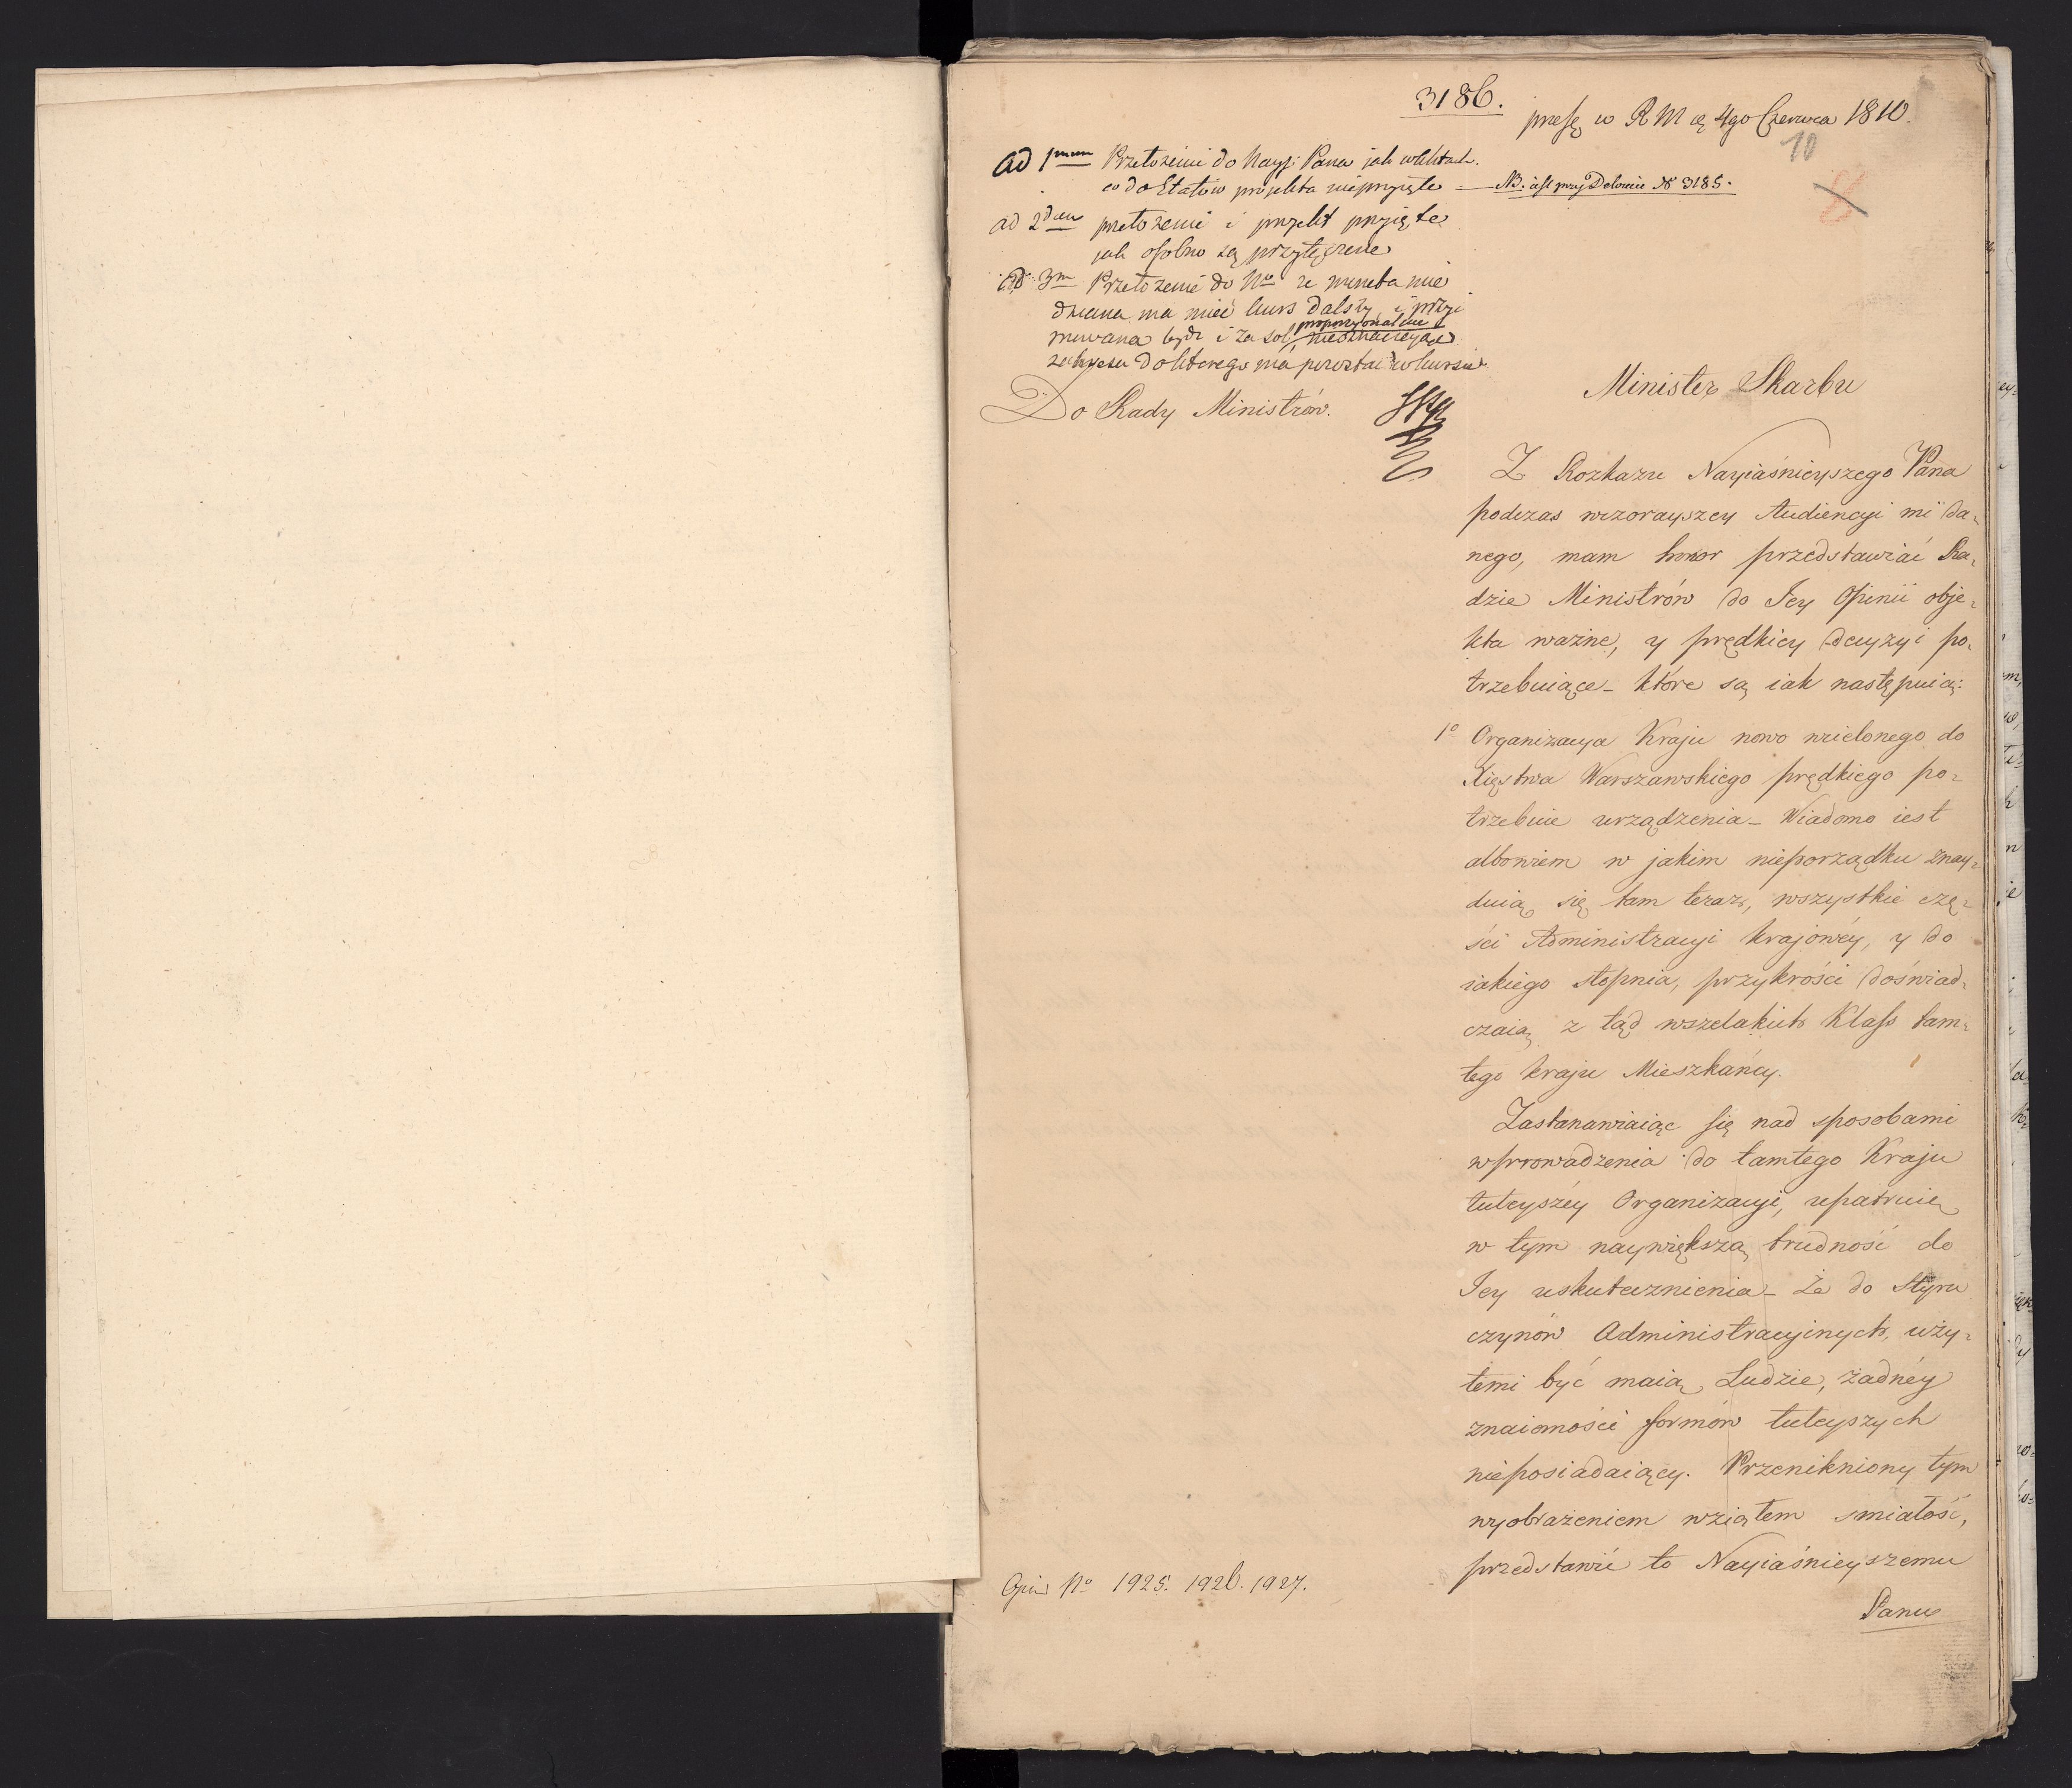 3186.
w R M 4go Czerwca 1810.
10
8
ad 1mum Przełożenie do Nayj: Pana jak w aktach.
co do Etatów projekta nieprzyięte — NB. iest przy Dekrecie No 3185.
ad 2dum przełożenie i projekt przyięte
jak osobno są przyłączone
ad 3m Przełożenie do No że moneta mie
dziana ma mieć kurs dalszy i przyi
mowana być i za sol proporcyonalnie
do którego ma pozostać w kursie
Do Rady Ministrów.
Minister Skarbu
Z Rozkazu Nayiaśnieyszego Pana
podczas wczorayszey Audiencyi mi da=
nego, mam honor przedstawiać Ra=
dzie Ministrów do Jey Opinii obje=
kta ważne, y prędkiey decyzyi po=
trzebuiące_ które są iak następuią:
1o Organizacya Kraju nowo wcielonego do
Xięstwa Warszawskiego prędkiego po=
trzebuie urządzenia_ Wiadomo iest
albowiem w jakim nieporządku znay=
duią się tam teraz, wszystkie czę=
ści Administracyi krajowéy, y do
iakiego stopnia, przykrości doświad=
czaią z tąd wszelakich Klass tam=
tego kraju Mieszkańcy.
Zastanawiaiąc się nad sposobami
wprowadzenia do tamtego Kraju
tuteyszéy Organizacyi, upatruię
w tym naywiększą trudność do
Jey uskutecznienia_ Że do Styru
czynów Administracyinych, uży=
temi być maią Ludzie, żadnéy
znaiomości formów tuteyszych
nieposiadaiący. Przenikniony tym
wyobrażeniem wziąłem smiałość,
przedstawić to Nayiaśnieyszemu
Panu
No 1925. 1926. 1927.